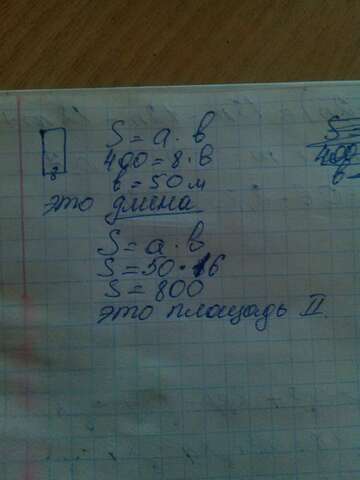 S = a · в
400 = 8 · в
в = 50 м
8
это длина
S = a · в
S = 50 · 16
S = 800
это площадь II.
S =
400
в -